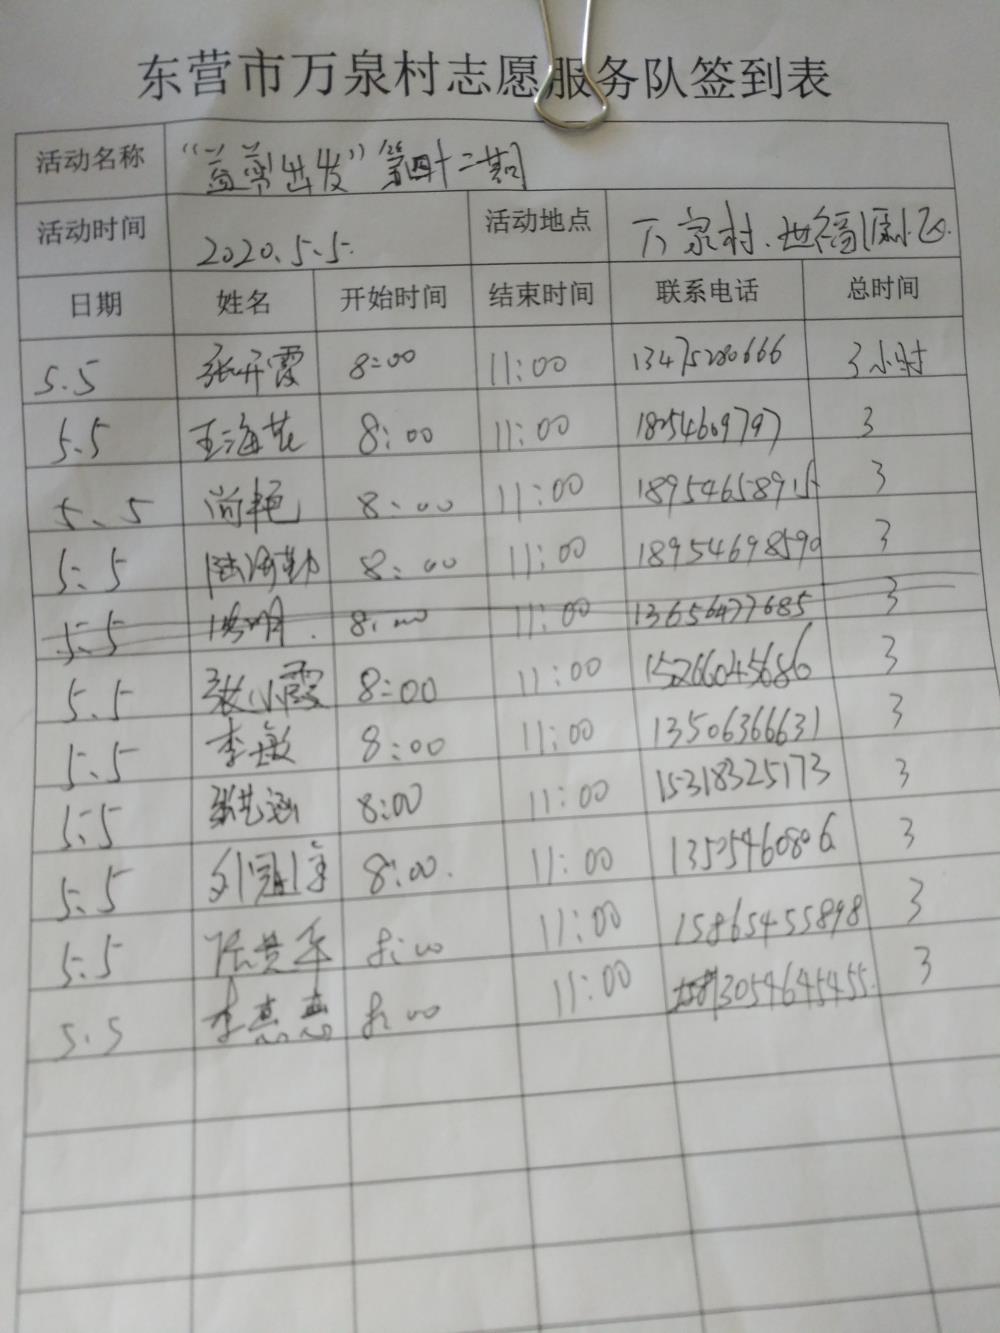 东营市万泉村志愿服务队签到表
活动名称 “益剪出发”第四十二期
活动时间 2020.5.5. 活动地点 万泉村.世福源小区.
日期 姓名 开始时间 结束时间 联系电话 总时间
5.5 张开霞 8:00 11:00 13475280666 3小时
5.5 王海花 8:00 11:00 18254609797 3
5、5 尚艳 8:00 11:00 18954658915 3
5.5 陆海勤 8:00 11:00 18954698590 3
5.5 8:00 11:00 13656477685 3
5.5 张小霞 8:00 11:00 15266045686 3
5.5 李敏 8:00 11:00 13506366631 3
5.5 张艺涵 8:00 11:00 15318325173 3
5.5 8:00. 11:00 13505460806 3
5.5 8:00 11:00 15865455898 3
5.5 李惠惠 8:00 11:00 13054645455. 3